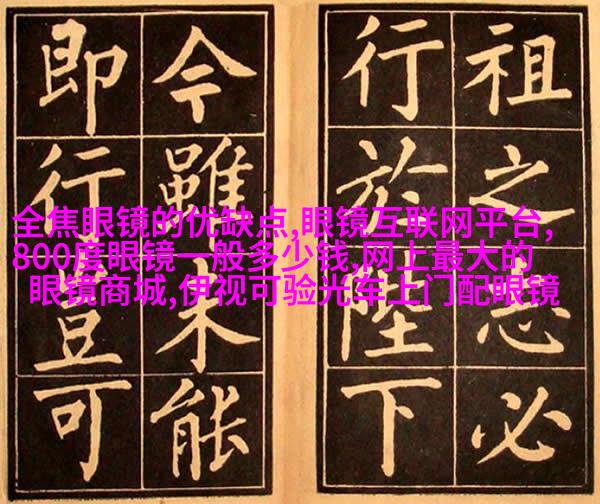 祖之志必
行於陛下
今雖未能
即行豈可
全焦眼镜的优缺点,眼镜互联网平台,
800度眼镜一般多少钱,网上最大的
眼镜商城,伊视可验光车上门配眼镜